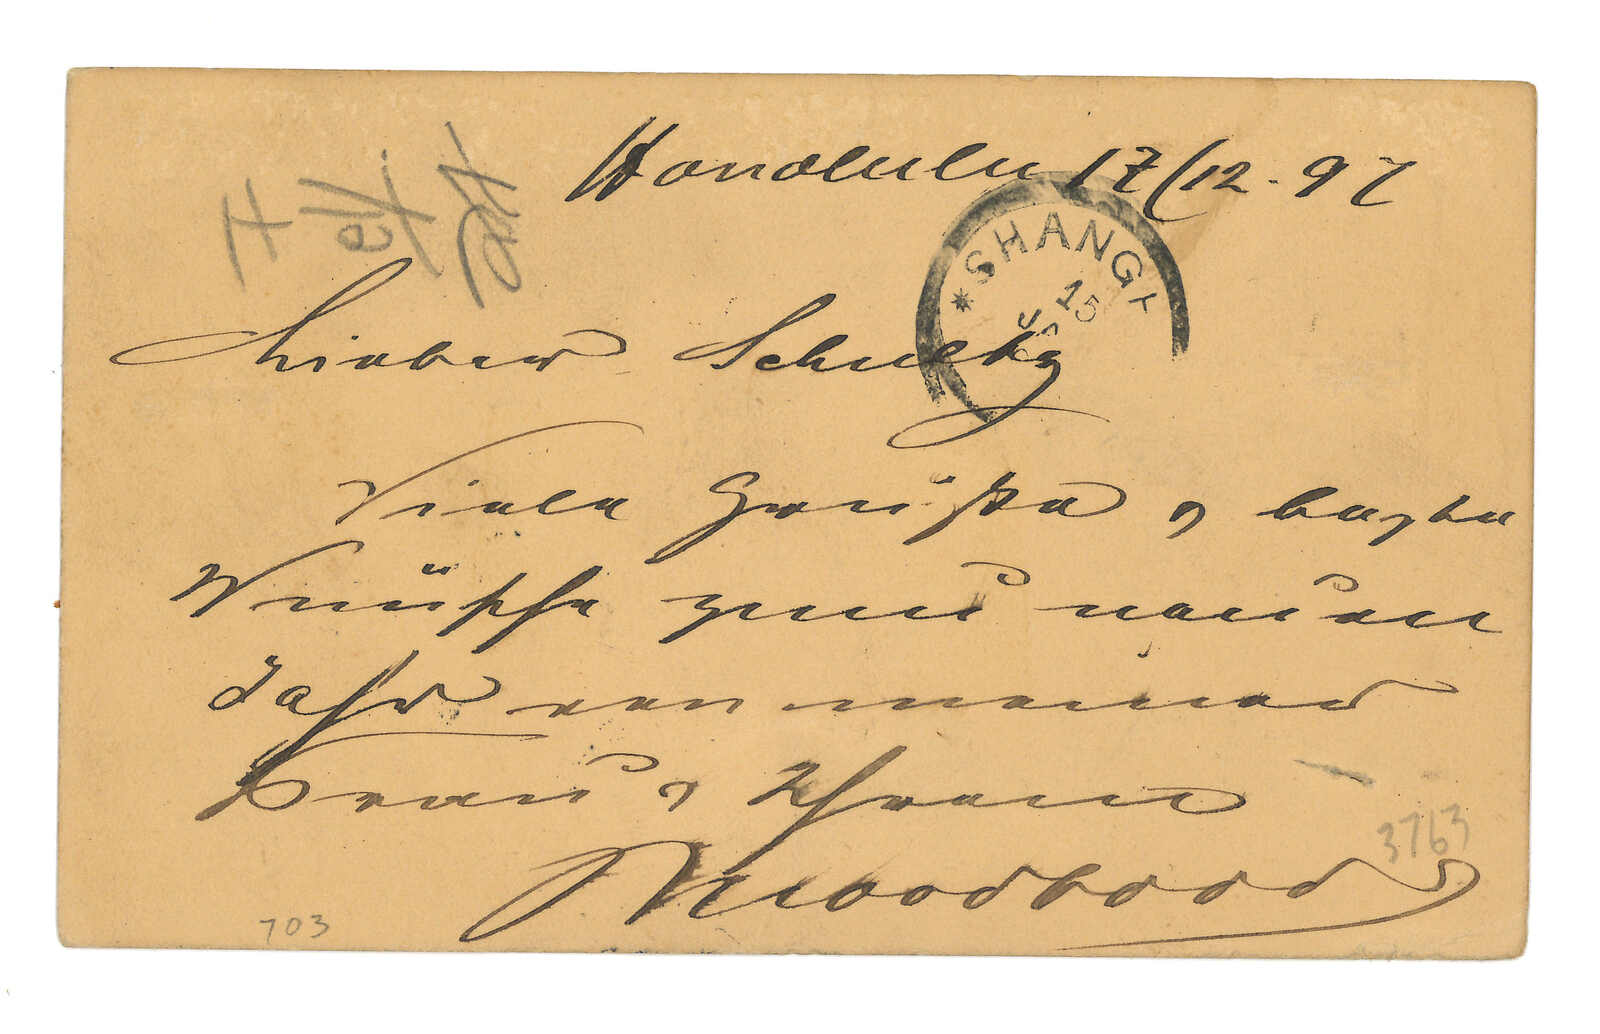 Honolulu 17/12. 97
SHANGH
15
JA
Lieber Schultz
Viele Grüße & beste
Wünsche zum neuen
Jahr von meiner
Frau & Ihrem
3763
703